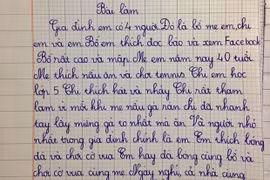 Bài làm
Gia đình em có 4 người. Đó là bố mẹ em, chị
em và em. Bố em thích đọc báo và xem Facebook
Bố rất cao và mập. Mẹ em năm nay 40 tuổi.
Mẹ thích nấu ăn và chơi tennis. Chị em học
lớp 5. Chị thích hát và nhảy. Chị rất tham
lam vì mỗi khi mẹ nấu gà rán chị đã nhanh
tay lấy miếng gà to nhất mà ăn. Và người nhỏ
nhất trong gia đình chính là em. Em thích bóng
đá và chơi cờ vua. Em hay đá bóng cùng bố và
chơi cờ vua cùng mẹ. Ngày nghỉ, cả nhà cùng